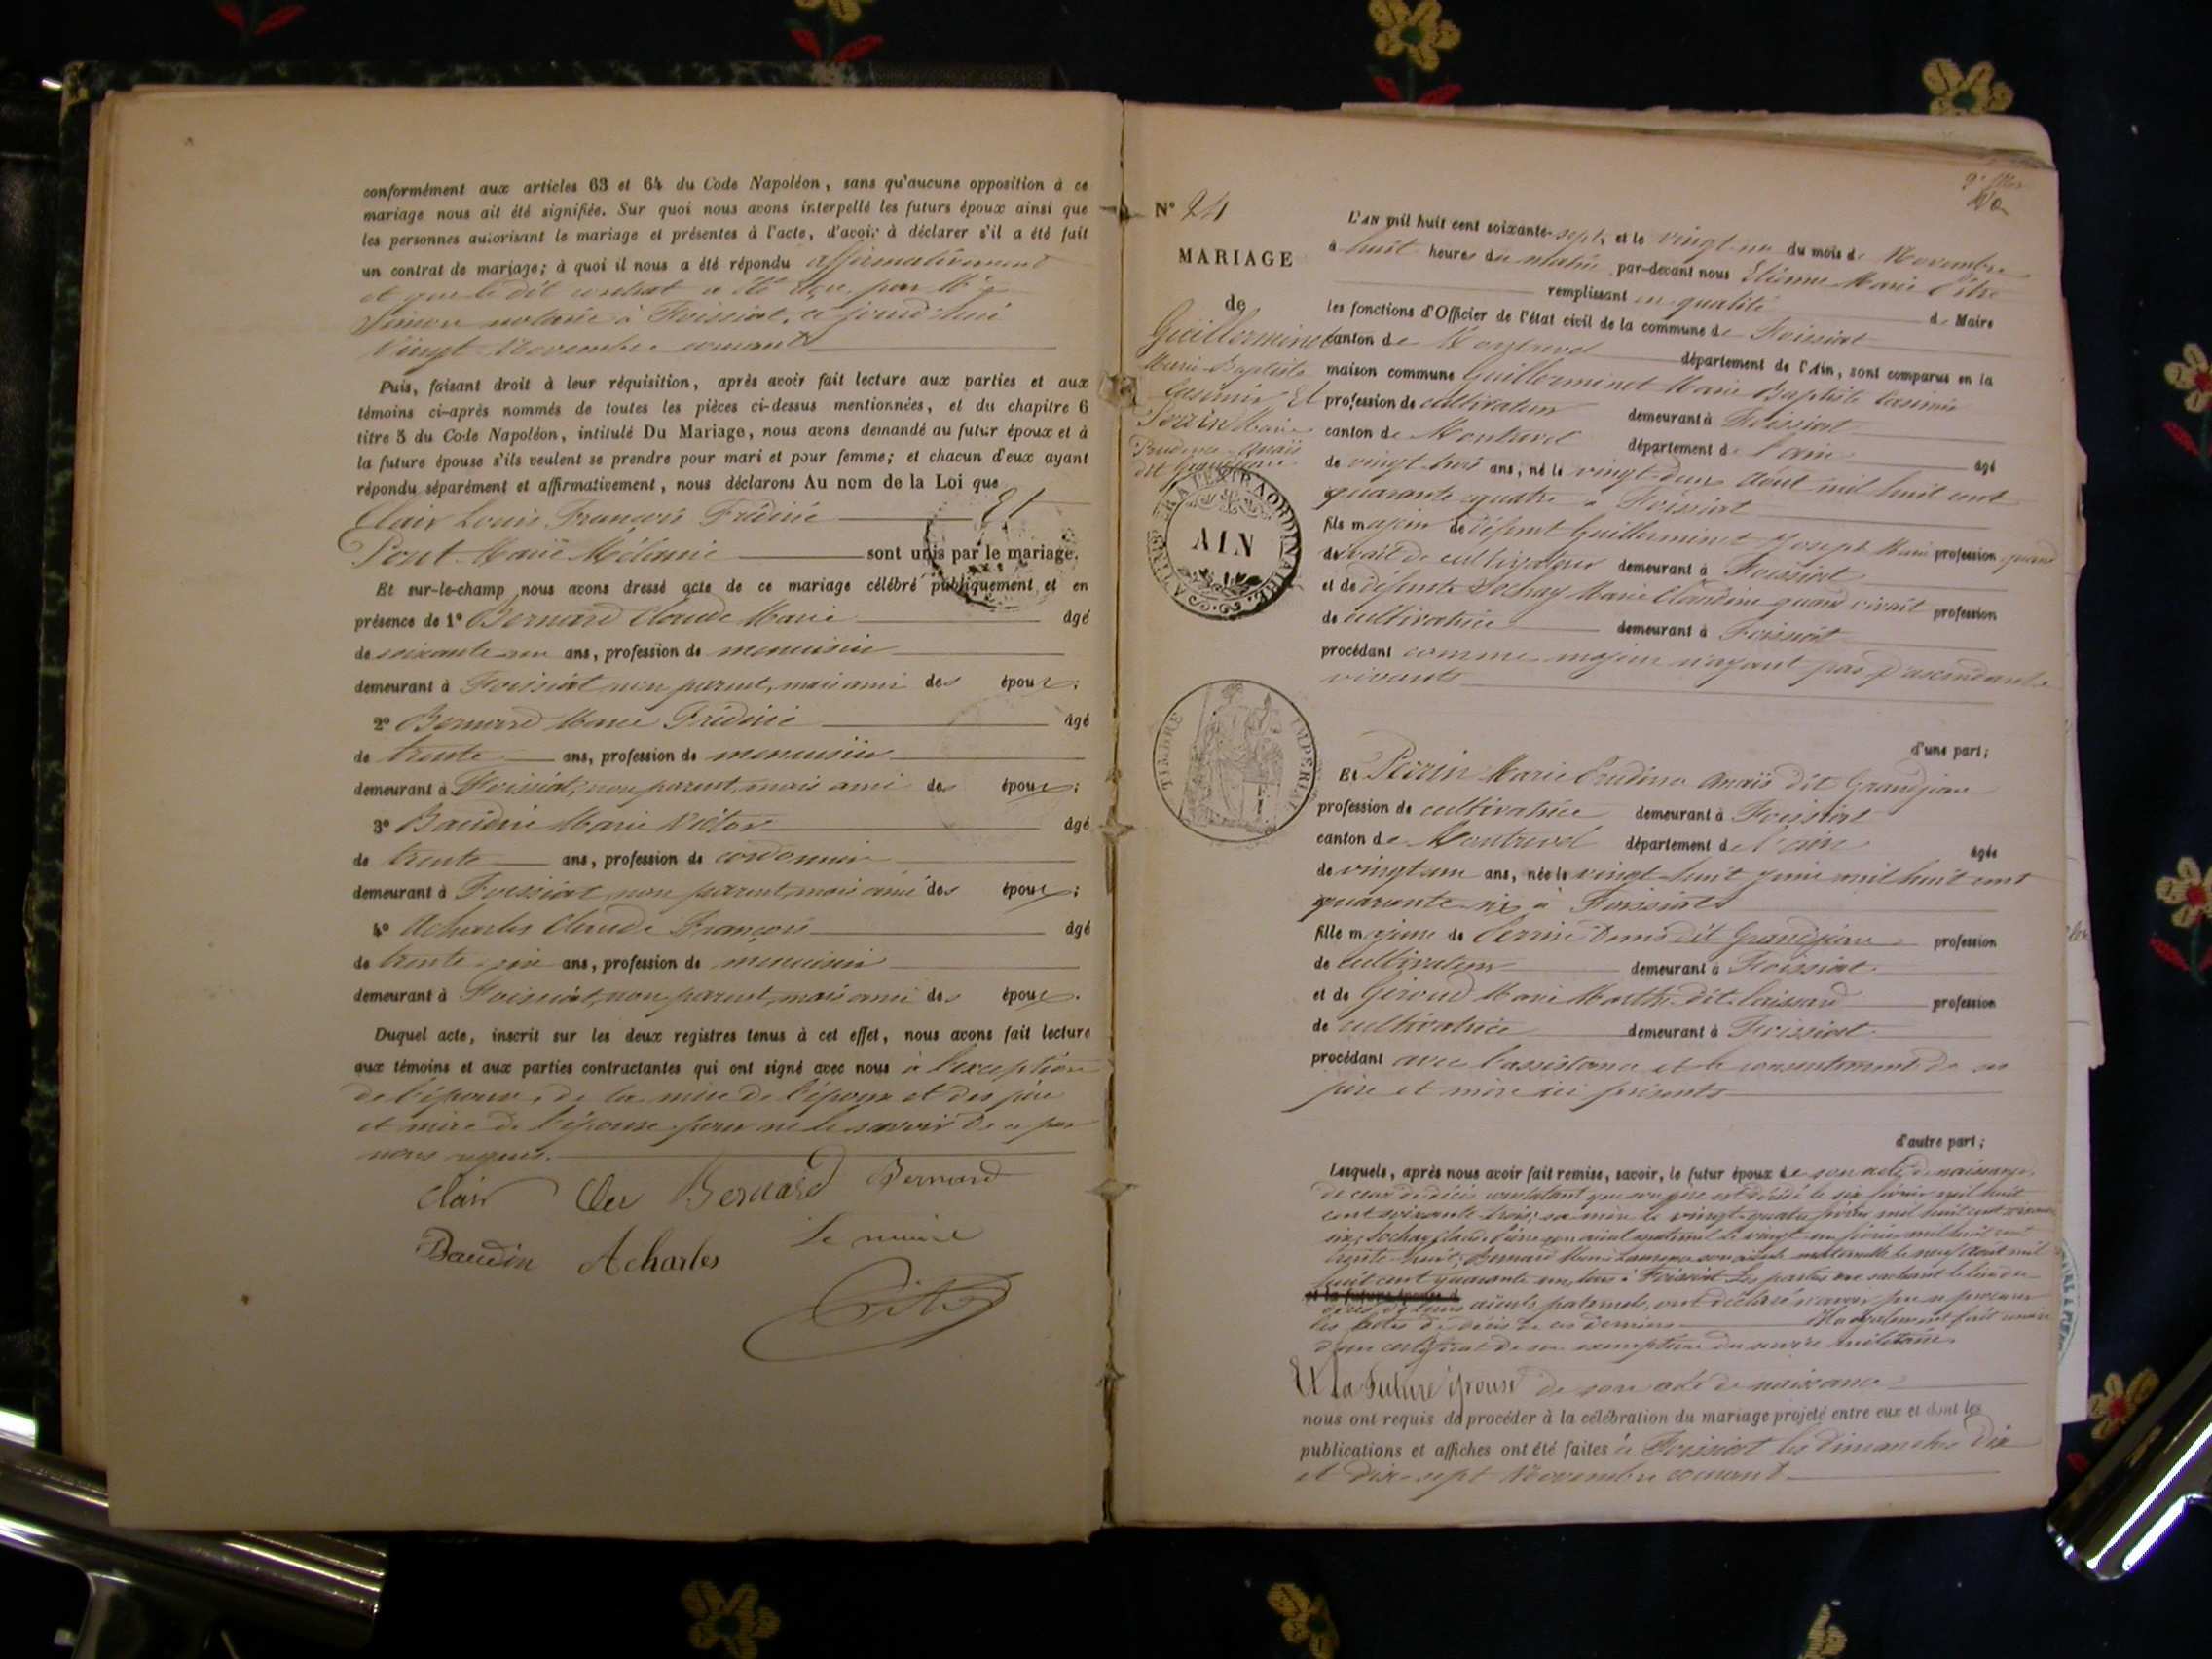 conformément aux articles 63 et 64 du Code Napoléon, sans qu'aucune opposition à ce
mariage nous ait été signifiée. Sur quoi nous avons interpellé les futurs époux ainsi que
les personnes autorisant le mariage et présentes à l'acte, d'avoir à déclarer s'il a été fait
un contrat de mariage; à quoi il nous a été répondu affirmativement
et que le dit contrat a été reçu par Me
Simon notaire à Foissiat, ce jourd'hui
vingt Novembre courant
Puis, faisant droit à leur réquisition, après avoir fait lecture aux parties et aux
témoins ci-après nommés de toutes les pièces ci-dessus mentionnées, et du chapitre 6
titre 5 du Code Napoléon, intitulé Du Mariage, nous avons demandé au futur époux et à
la future épouse s'ils veulent se prendre pour mari et pour femme; et chacun d'eux ayant
répondu séparément et affirmativement, nous déclarons Au nom de la Loi que
Clair Louis François Frédéric Et
Pont Marie Mélanie sont unis par le mariage.
Et sur-le-champ nous avons dressé acte de ce mariage célébré publiquement et en
présence de 1° Bernard Claude Marie âgé
de soixante un ans, profession de menuisier
demeurant à Foissiat non parent, mais ami des époux;
2° Bernard Marie Frédéric âgé
de trente ans, profession de menuisier
demeurant à Foissiat, non parent, mais ami des époux;
3° Baudin Marie Victor âgé
de trente ans, profession de cordonnier
demeurant à Foissiat non parent, mais ami des époux;
4° Acharles Claude François âgé
de trente six ans, profession de menuisier
demeurant à Foissiat, non parent, mais ami des époux.
Duquel acte, inscrit sur les deux registres tenus à cet effet, nous avons fait lecture
aux témoins et aux parties contractantes qui ont signé avec nous à l'exception
de l'épouse, de la mère de l'époux et des père
et mère de l'épouse pour ne le savoir de ce par
nous requis.
Clair Bernard Bernard
Baudin Acharles Le maire
N° 24
MARIAGE
de
Guillerminet
Marie Baptiste
Casimir Et
Perrin Marie
Prudence Anaïs
dit Grandjean
AIN
TIMBRE IMPERIAL
L'AN mil huit cent soixante-sept, et le vingt-un du mois de Novembre
à huit heures du matin par-devant nous Etienne Marie
remplissant en qualité de Maire
les fonctions d'Officier de l'état civil de la commune de Foissiat
canton de Montrevel département de l'Ain, sont comparus en la
maison commune Guillerminet Marie Baptiste Casimir
profession de cultivateur demeurant à Foissiat
canton de Montrevel département de l'ain âgé
de vingt trois ans, né le vingt-deux Août mil huit cent
quarante quatre à Foissiat
fils majeur de défunt Guillerminet Joseph Marie profession quand
vivait de cultivateur demeurant à Foissiat
et de défunte Sochay Marie Claudine quand vivait profession
de cultivatrice demeurant à Foissiat
procédant comme majeur n'ayant pas d'ascendants
vivants
d'une part;
Et Perrin Marie Prudence Anaïs dit Grandjean
profession de cultivatrice demeurant à Foissiat
canton de Montrevel département de l'ain âgée
de vingt un ans, née le vingt huit juin mil huit cent
quarante six à Foissiat
fille majeure de Perrin Denis dit Grandjean profession
de cultivateur demeurant à Foissiat
et de Giroud Marie Marthe dit profession
de cultivatrice demeurant à Foissiat
procédant avec l'assistance et le consentement de ses
père et mère ici présents
d'autre part;
Lesquels, après nous avoir fait remise, savoir, le futur époux de son acte de naissance,
de ceux de décès constatant que son père est décédé le six février mil huit
cent soixante trois; sa mère le vingt quatre février mil huit cent soixante
six; Sochay Claude Pierre son aïeul maternel le vingt un février mil huit cent
trente huit; Bernard Marie son aïeule maternelle le neuf Août mil
huit cent quarante un, tous à Foissiat. Les parties ne sachant le lieu du
décès de leurs aïeuls paternels, ont déclaré n'avoir pu se procurer
les actes de décès de ces derniers Il a également fait remise
d'un certificat de son exemption du service militaire
Et la future épouse de son acte de naissance
nous ont requis de procéder à la célébration du mariage projeté entre eux et dont les
publications et affiches ont été faites à Foissiat les dimanches dix
et dix-sept Novembre courant